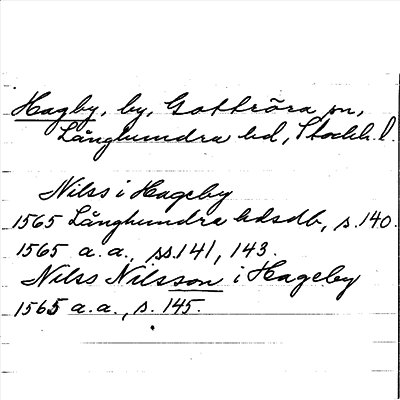 Hagby, by, Gottröra sn,
Långhundra hd, Stockh. l.
Nilss i Hageby
1565 Långhundra hdsdb, s. 140.
1565 a.a., ss. 141, 143.
Nilss Nilsson i Hageby
1565 a.a., s. 145.